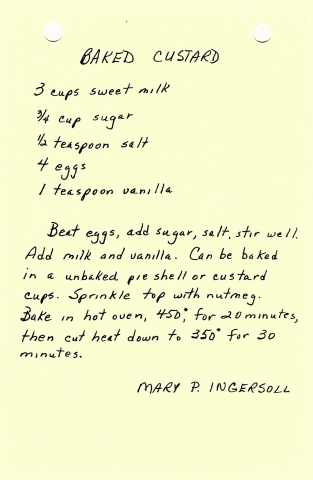 BAKED CUSTARD
3 cups sweet milk
3/4 cup sugar
1/2 teaspoon salt
4 eggs
1 teaspoon vanilla
Beat eggs, add sugar, salt, stir well.
Add milk and vanilla. Can be baked
in a unbaked pie shell or custard
cups. Sprinkle top with nutmeg.
Bake in hot oven, 450°, for 20 minutes,
then cut heat down to 350° for 30
minutes.
MARY P. INGERSOLL